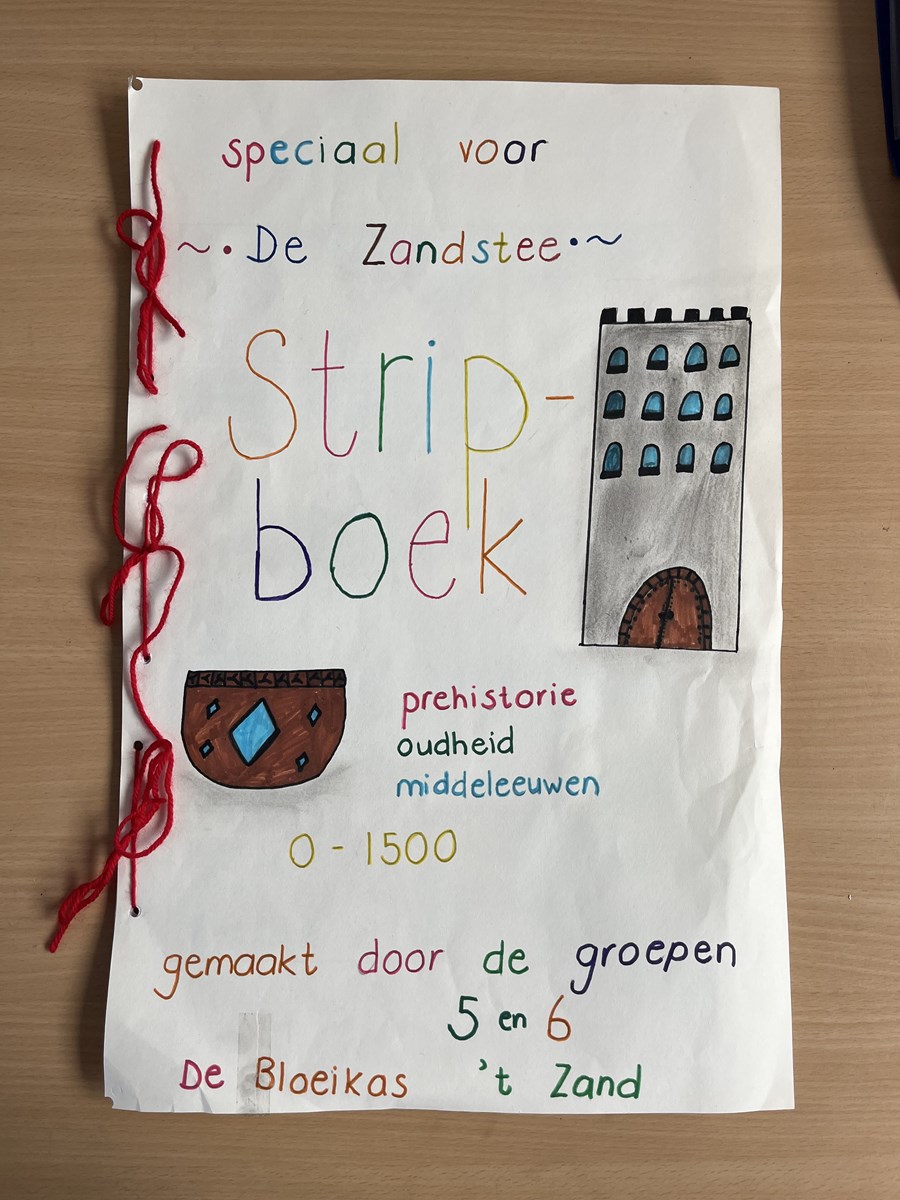 speciaal voor
~ • De Zandstee • ~
Strip-
boek
prehistorie
oudheid
middeleeuwen
0 - 1500
gemaakt door de groepen
5 en 6
De Bloeikas 't Zand